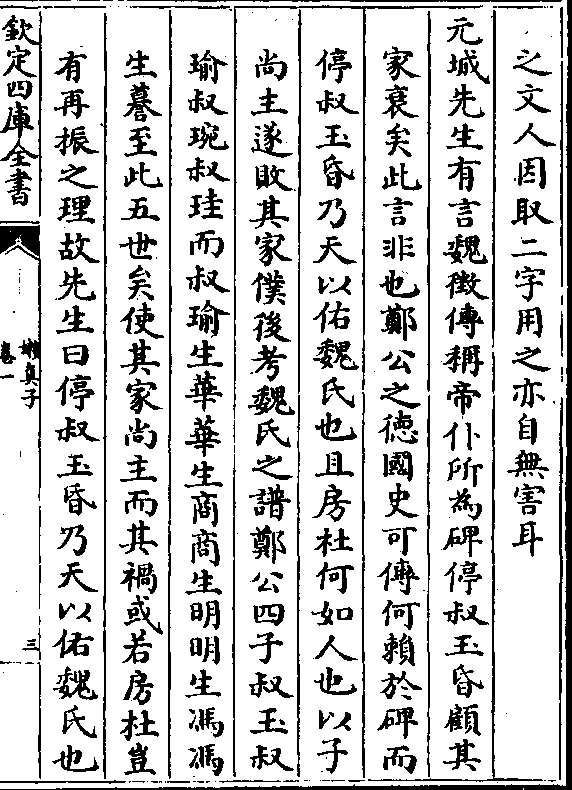 之文人因取二字用之亦自無害耳
元城先生有言魏徴傳稱帝仆所為碑停叔玉昏顧其
家衰矣此言非也鄭公之徳國史可傳何頼於碑而
停叔玉昏乃天以佑魏氏也且房杜何如人也以子
尚主遂敗其家僕後考魏氏之譜鄭公四子叔玉叔
瑜叔琬叔珪而叔瑜生華華生商商生明明生馮馮
生謩至此五世矣使其家尚主而其禍或若房杜豈
有再振之理故先生曰停叔玉昏乃天以佑魏氏也
欽定四庫全書
嬾真子
卷一
三